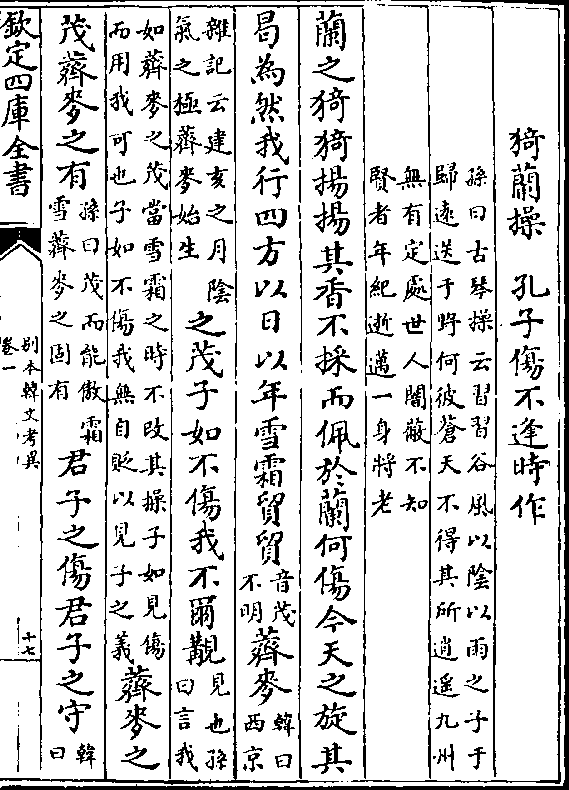 猗蘭操　孔子傷不逢時作
孫曰古琴操云習習谷風以陰以雨之子于
歸逺送于野何彼蒼天不得其所逍遥九州
無有定處世人闇蔽不知
賢者年紀逝邁一身將老
蘭之猗猗揚揚其香不採而佩於蘭何傷今天之旋其
曷為然我行四方以日以年雪霜貿貿音茂不明薺麥韓曰西京
雜記云建亥之月陰氣之極薺麥始生之茂子如不傷我不爾覯見也孫曰言我
如薺麥之茂當雪霜之時不改其操子如見傷而用我可也子如不傷我無自貶以見子之義薺麥之
茂薺麥之有孫曰茂而能傲霜雪薺麥之固有君子之傷君子之守韓曰
欽定四庫全書
别本韓文考異
卷一
十七